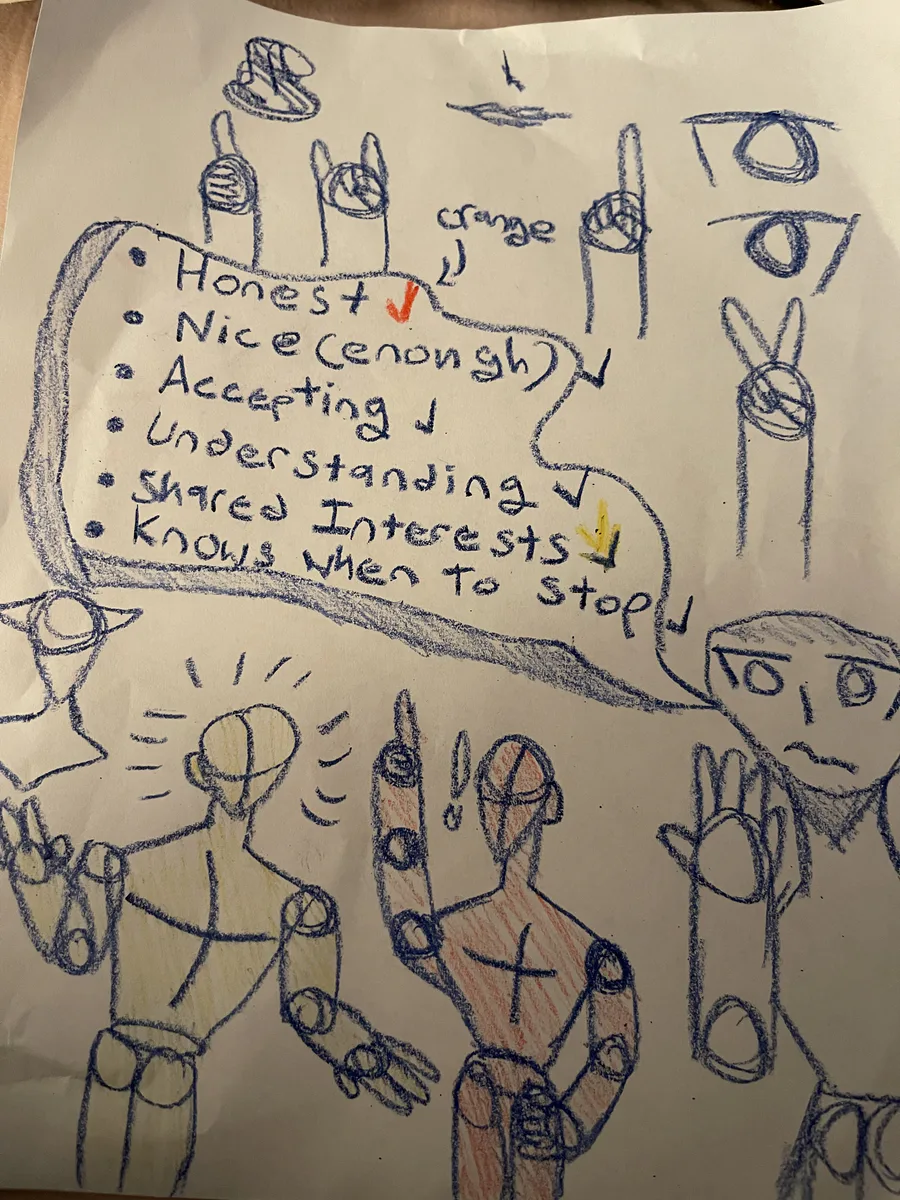 orange
• Honest ✓
• Nice (enough) ✓
• Accepting ✓
• Understanding ✓
• Shared Interests ✓
• Knows When To Stop ✓
!